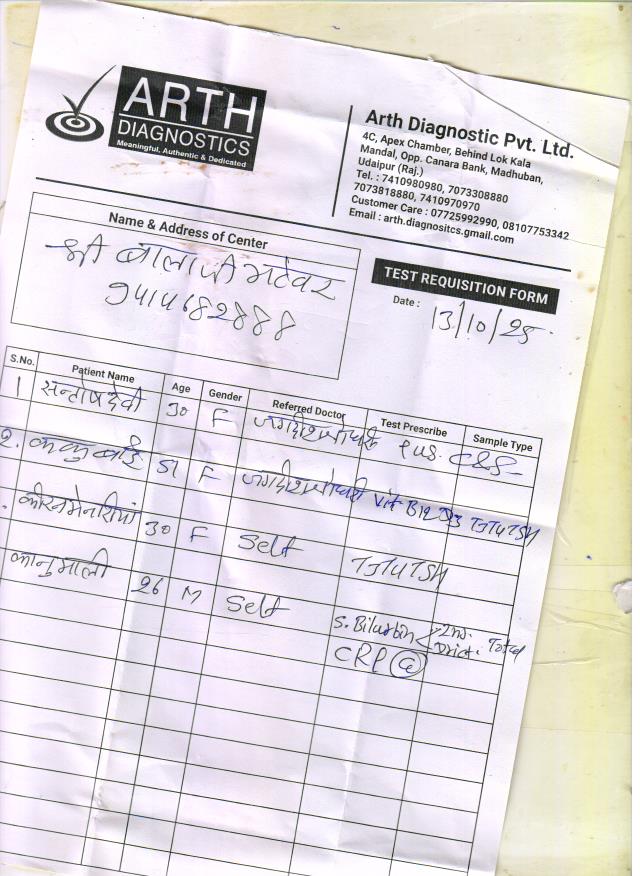 ARTH
DIAGNOSTICS
Meaningful, Authentic & Dedicated
Arth Diagnostic Pvt. Ltd.
4C, Apex Chamber, Behind Lok Kala
Mandal, Opp. Canara Bank, Madhuban,
Udaipur (Raj.)
Tel. : 7410980980, 7073308880
7073818880, 7410970970
Customer Care : 07725992990, 08107753342
Email : arth.diagnositcs.gmail.com
Name & Address of Center
श्री बालाजी
9414682888
TEST REQUISITION FORM
Date : 13/10/25
S.No. Patient Name Age Gender Referred Doctor Test Prescribe Sample Type
1 सन्तोष देवी 30 F Pus C&S
2. बाई 51 F Vit B12 D3 T3T4TSH
30 F Self T3T4TSH
माली 26 M Self S. Bilurbin Ind. Total
Drict.
CRP